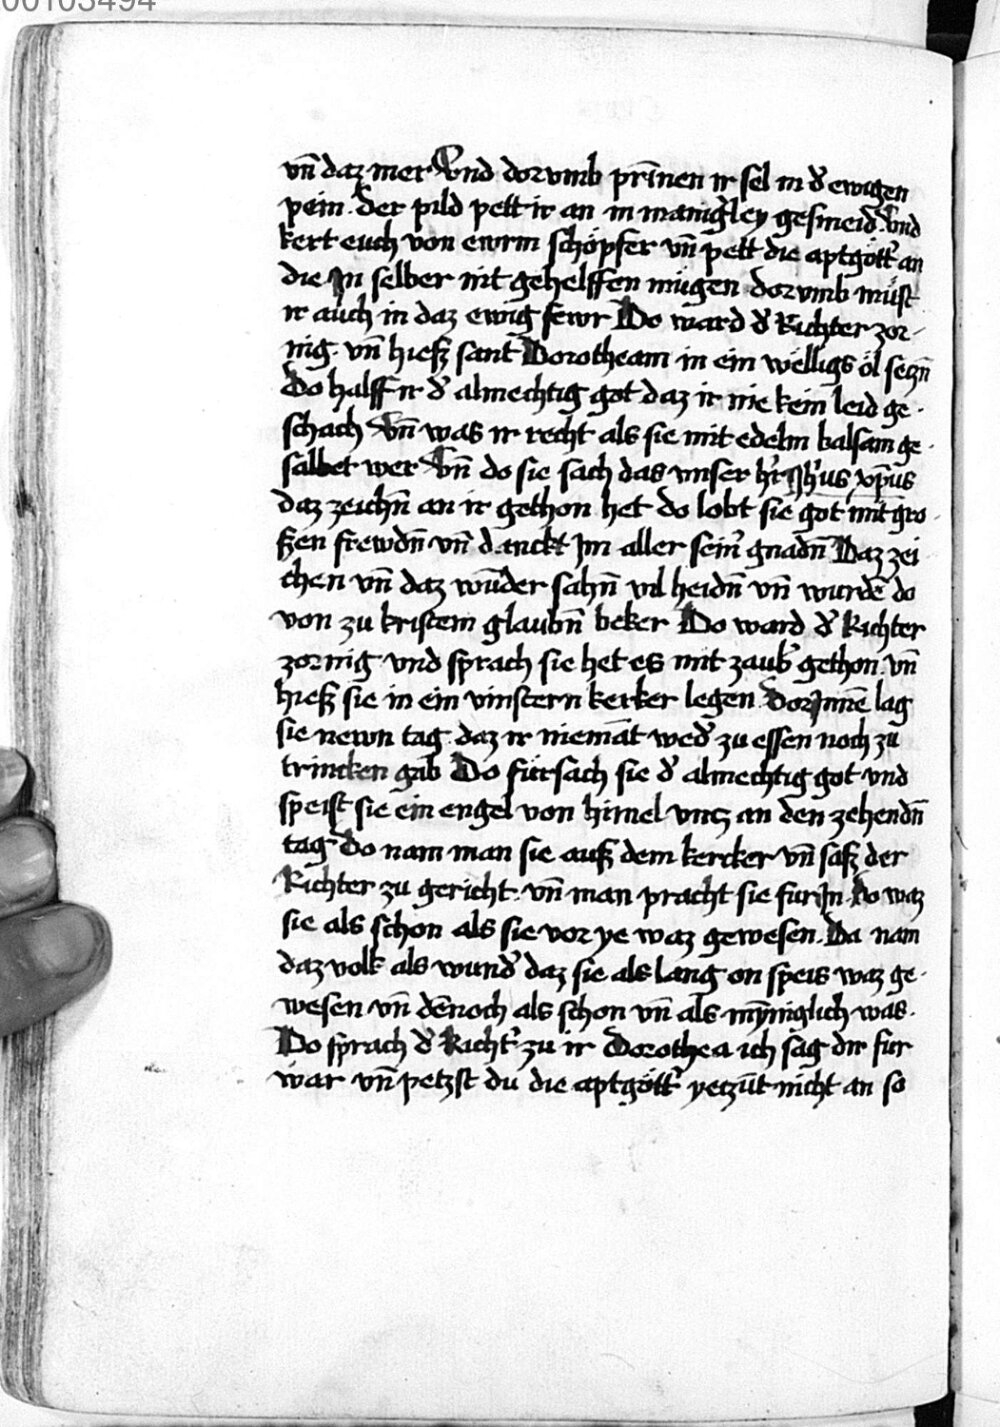 00103494
vn̄ daz mer Vnd dorvmb prīnen ir sel in d̕ ewigen
pein. Der pild pett ir an in manig̕ley gesmeid. Vnd
kert euch von ewrm schöpfer vn̄ pett die aptgött̕ an
die Jn selber nit gehelffen mügen dorvmb müst
ir auch in daz ewig fewr Do ward d̕ Richter zor-
nig. vn̄ hieß sant Dorotheam in ein welligs öl seczn̄
Do halff ir d̕ almechtig got daz ir nie kein leid ge-
schach Vn̄ was ir recht als sie mit edelm balsam ge-
salbet wer Vn̄ do sie sach das vnser hr̄ Jhūs xp̄us
daz zeichn̄ an ir gethon het do lobt sie got mit gro-
ßen frewdn̄ vn̄ danckt Jm aller sein̕ gnadn̄ Daz zei
chen vn̄ daz wūder sahn̄ vil heidn̄ vn̄ wurdē do
von zu kristem glaubn̄ beker Do ward d̕ Richter
zornig vnd sprach sie het es mit zaub̕ gethon. vn̄
hieß sie in ein vinstern kerker legen. DorJnnē lag
sie newn tag. daz ir niemāt wed̕ zu essen noch zu
trincken gab Do fürsach sie d̕ almechtig got vnd
speist sie ein engel von himel vncz an den zehendn̄
tag Do nam man sie auß dem kercker vn̄ saß der
Richter zu gericht. vn̄ man pracht sie für Jn. Do waz
sie als schon als sie vor ye waz gewesen. Da nam
daz volk als wund̕ daz sie als lang on speis waz ge-
wesen vn̄ dēnoch als schon vn̄ als mȳniglich was.
Do sprach d̕ Richt̕ zu ir Dorothea ich sag dir für
war vn̄ petzst du die aptgött̕ yeczūt nicht an so